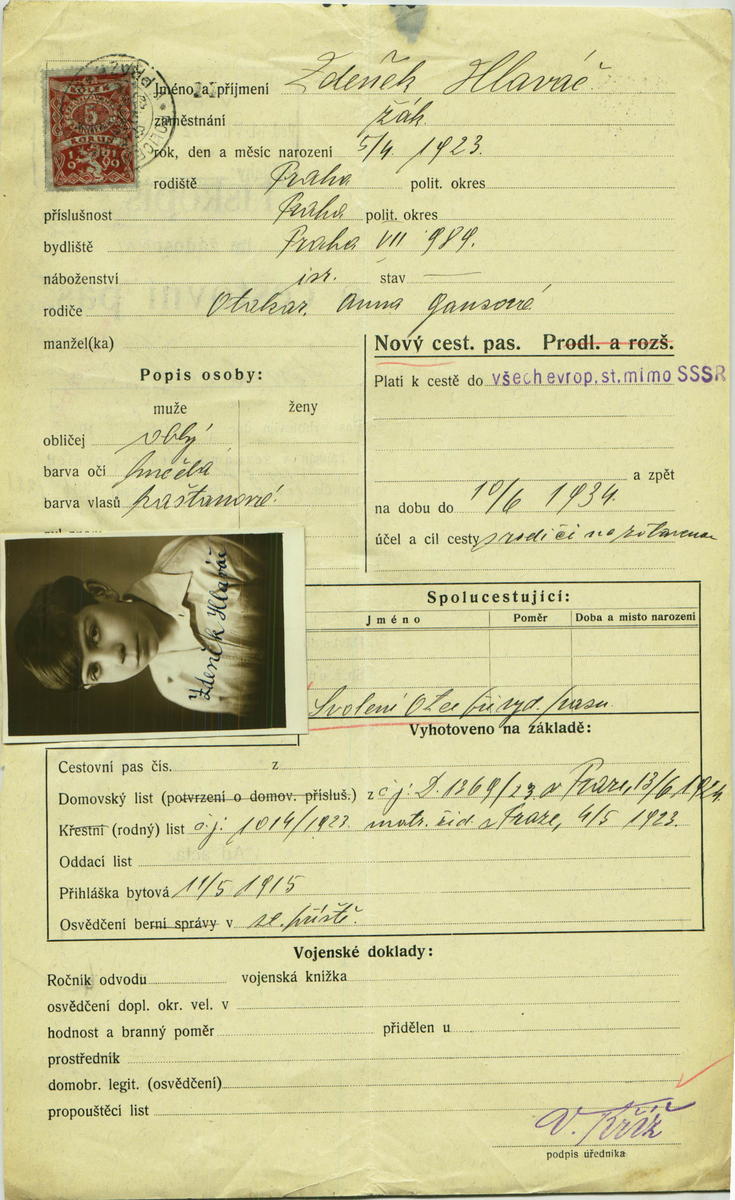 5
KORUN
1919
Jméno a příjmení Zdeněk Hlaváč
zaměstnání žák.
rok, den a měsíc narození 5/4. 1923.
rodiště Praha polit. okres
příslušnost Praha polit. okres
bydliště Praha VII 989.
náboženství isr. stav —
rodiče Otakar, Anna Gansové
manžel(ka)
Nový cest. pas. Prodl. a rozš.
Popis osoby:
Platí k cestě do všech evrop. st. mimo SSSR
muže ženy
obličej oblý
barva očí hnědá
barva vlasů kaštanové.
a zpět
na dobu do 10/6 1934.
účel a cíl cesty s rodiči na zotavenou
Zdeněk Hlaváč
Spolucestující:
Jméno Poměr Doba a místo narození
Svolení otce při vyd. pasu.
Vyhotoveno na základě:
Cestovní pas čís. z
Domovský list (potvrzení o domov. přísluš.) z č.j. D. 1369/23 v Praze, 13/6 1924.
Křestní (rodný) list č.j. 1014/1923. matr. žid. v Praze, 4/5 1923.
Oddací list
Přihláška bytová 11/5 1915
Osvědčení berní správy v
Vojenské doklady:
Ročník odvodu vojenská knížka
osvědčení dopl. okr. vel. v
hodnost a branný poměr přidělen u
prostředník
domobr. legit. (osvědčení)
propouštěcí list
V. Kříž
podpis úředníka